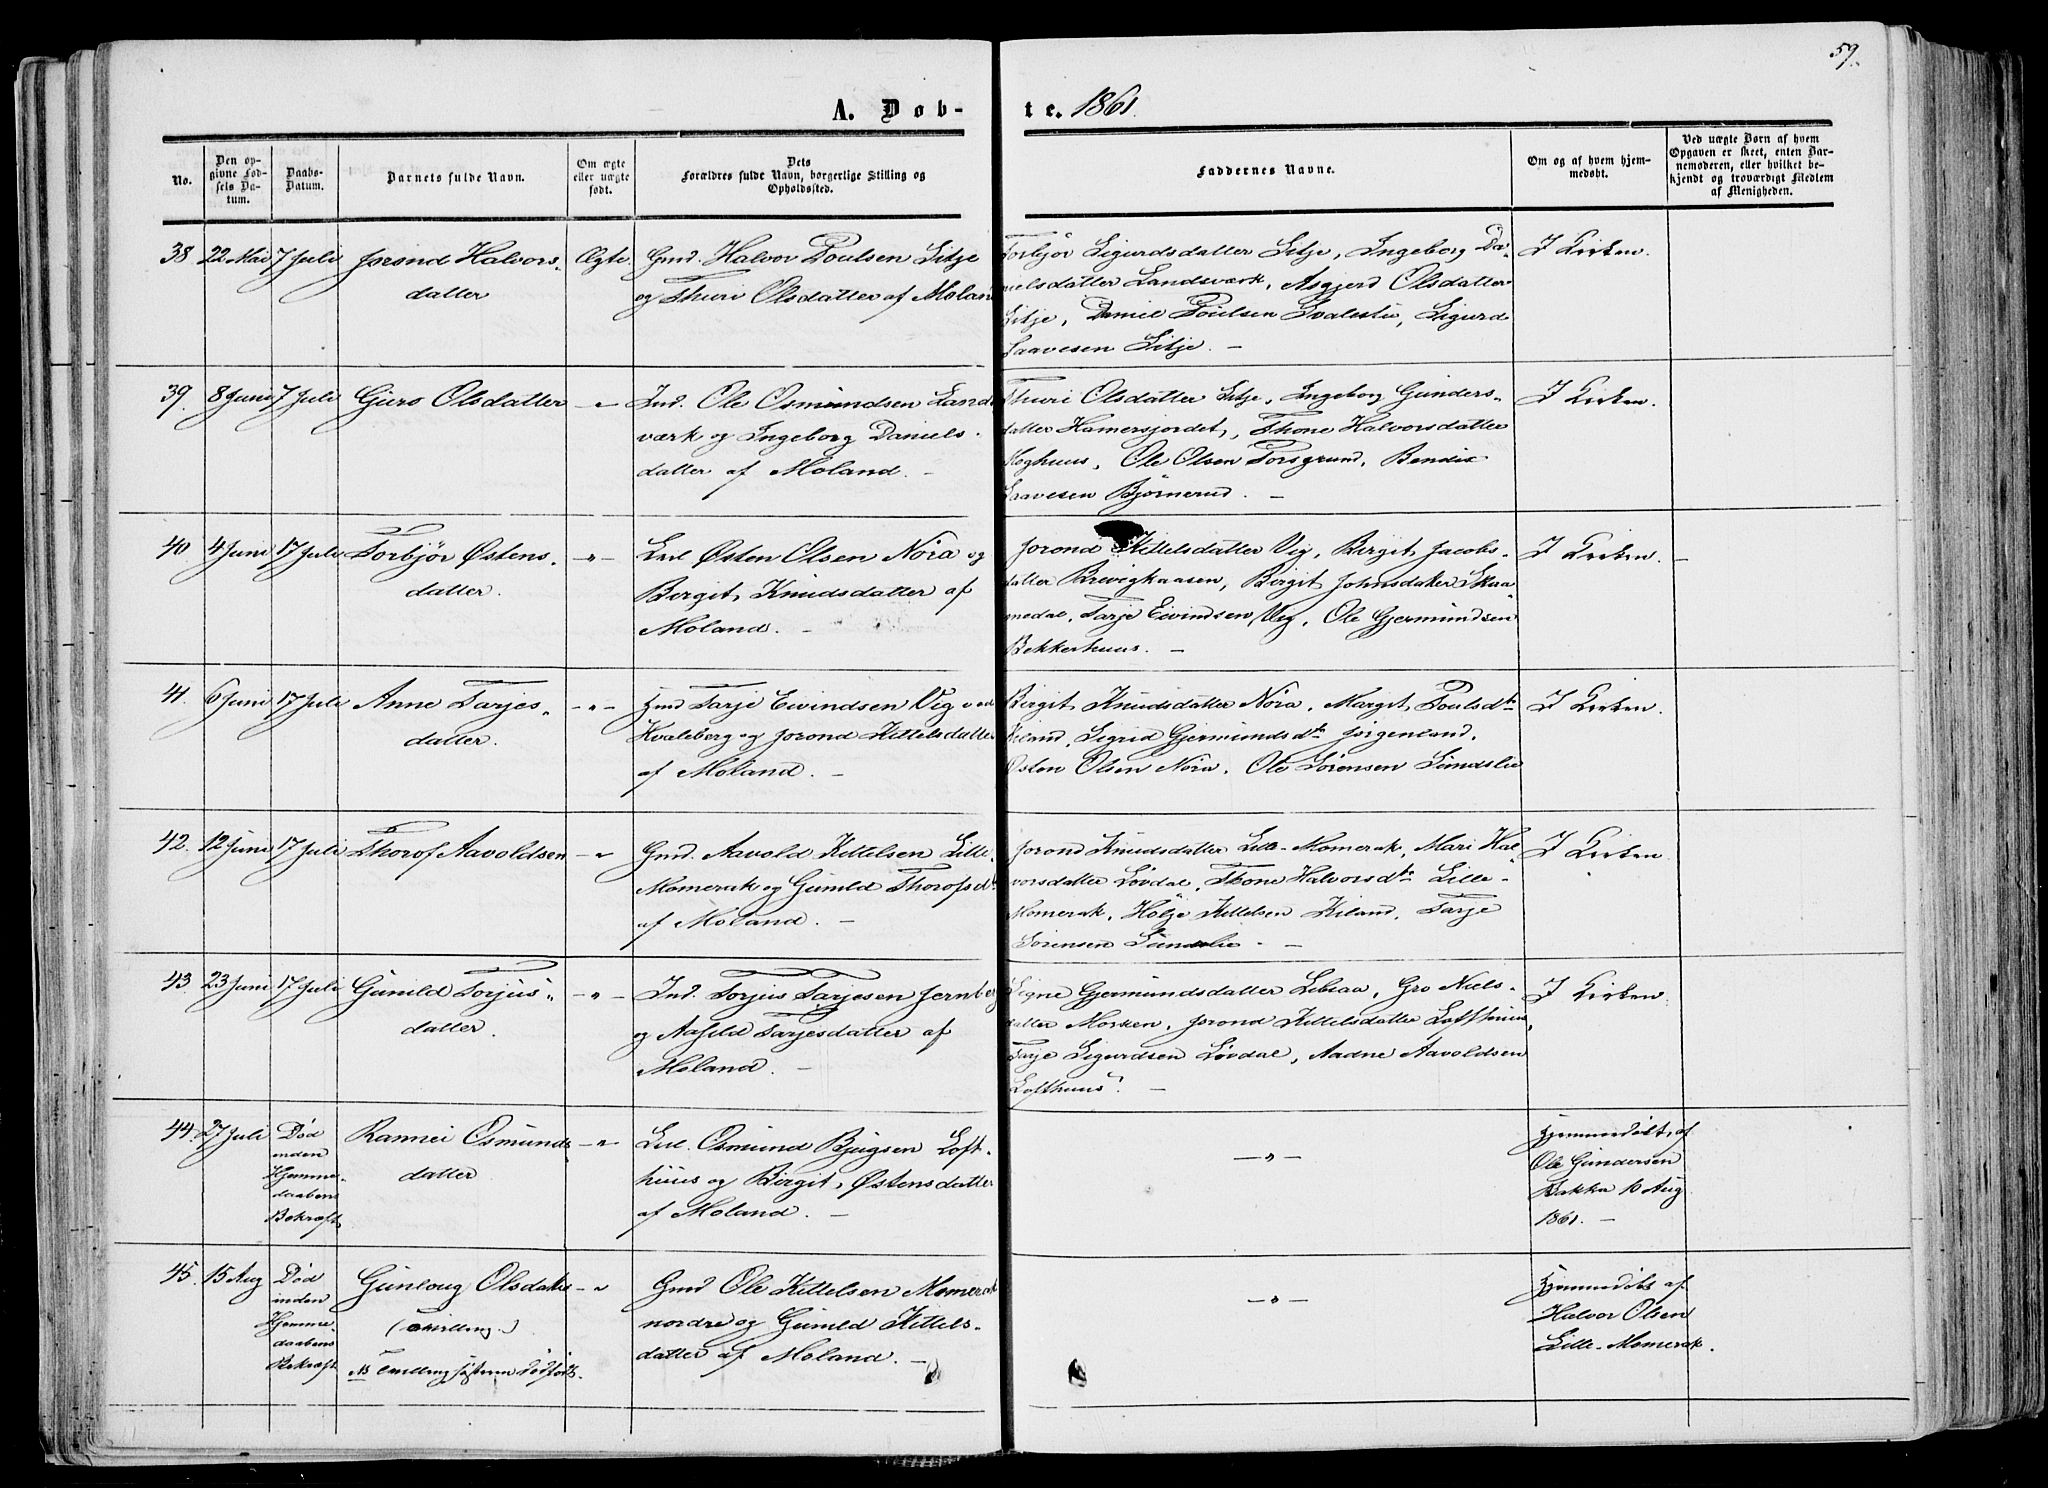 59.
A. Døb-
te. 1861.
No.
Den op-
givne Fød-
sels Da-
tum.
Daabs-
Datum.
Barnets fulde Navn.
Om ægte
eller uægte
født.
Dets
Forældres fulde Navn, borgerlige Stilling og
Opholdssted.
Faddernes Navne.
Om og af hvem hjem-
medøbt.
Ved uægte Børn af hvem
Opgaven er skeet, enten Bar-
nemoderen, eller hvilket be-
kjendt og troværdigt Medlem
af Menigheden.
38 22 Mai 7 Juli Jorond Halvors-
datter
Ægte.
Gmd. Halvor Poulsen Litje
og Thuri Olsdatter af Moland
Torbjør Sigurdsdatter Litje, Ingeborg Da-
nielsdatter Landsværk, Asgjerd Olsdatter
Litje, Daniel Poulsen Svalestu, Sigurd
Saavesen Litje. —
I Kirken.
39. 8 Juni 7 Juli Gjuro Olsdatter - "
Ind. Ole Osmundsen Land
værk og Ingeborg Daniels-
datter af Moland. —
Thuri Olsdatter Litje, Ingeborg Gunders-
datter Hamersjordet, Thone Halvorsdatter
Moghuus, Ole Olsen Torsgrund, Bendix
Saavesen Bjørnerud. —
I Kirken.
40 4 Juni 17 Juli Torbjør Østens-
datter.
- " -
Østen Olsen Nora og
Birgit Knudsdatter af
Moland. —
Jorond Kittelsdatter Vig, Birgit Jacobs-
datter Brevigkaasen, Birgit Johnsdatter Skaa-
medal, Tarje Eivindsen Vig, Ole Gjermundsen
Bekkerhuus. —
I Kirken. —
41. 6 Juni 17 Juli Anne Tarjes-
datter.
- " -
Tarje Eivindsen Vig ved
Hvaleberg og Jorond Kittelsdatter
af Moland. —
Birgit Knudsdatter Nora, Margit Poulsdtr
Kiland, Sigrid Gjermundsdtr Jorgenland,
Østen Olsen Nora, Ole Sørensen Sundslie
I Kirken.
42. 12 Juni 17 Juli Thorof Aavoldsen - "
Gmd. Aavold Kittelsen Lille-
Momerak og Gunild Thorofsdr
af Moland. —
Jorond Knudsdatter Lille-Momerak, Mari Hal-
vorsdatter Løvdal, Thone Halvorsdtr Lille-
Momerak, Hølje Kittelsen Kiland, Tarje
Sørensen Sundslie. —
I Kirken.
43. 23 Juni 17 Juli Gunild Torjus-
datter.
- " -
Ind. Torjus Tarjesen Jernb
og Aasild Tarjesdatter af
Moland. —
Signe Gjermundsdatter Libsaa, Gro Niels-
datter Morken, Jorond Kittelsdatter Lofthuus,
Tarje Sigurdsen Løvdal, Aadne Aavoldsen
Lofthuus. —
I Kirken.
44. 27 Juli Død
inden
Hjemme-
daabens
Bekræft.
Rannei Osmunds-
datter
- " -
Osmund Bjugsen Loft-
huus og Birgit Østensdatter
af Moland. —
— " —
Hjemmedøbt af
Ole Gundersen
Bakka 10 Aug
1861. —
45. 15 Aug Død
inden
Hjemme-
daabens
Bekræft.
Gunloug Olsdatter
(Tvilling.)
NB Tvillingsøsteren dødfødt.
- "
Gmd Ole Kittelsen Momerak
nordre og Gunild Kittels-
datter af Moland. —
— " —
Hjemmedøbt af
Halvor Olsen
Lille-Momerak.